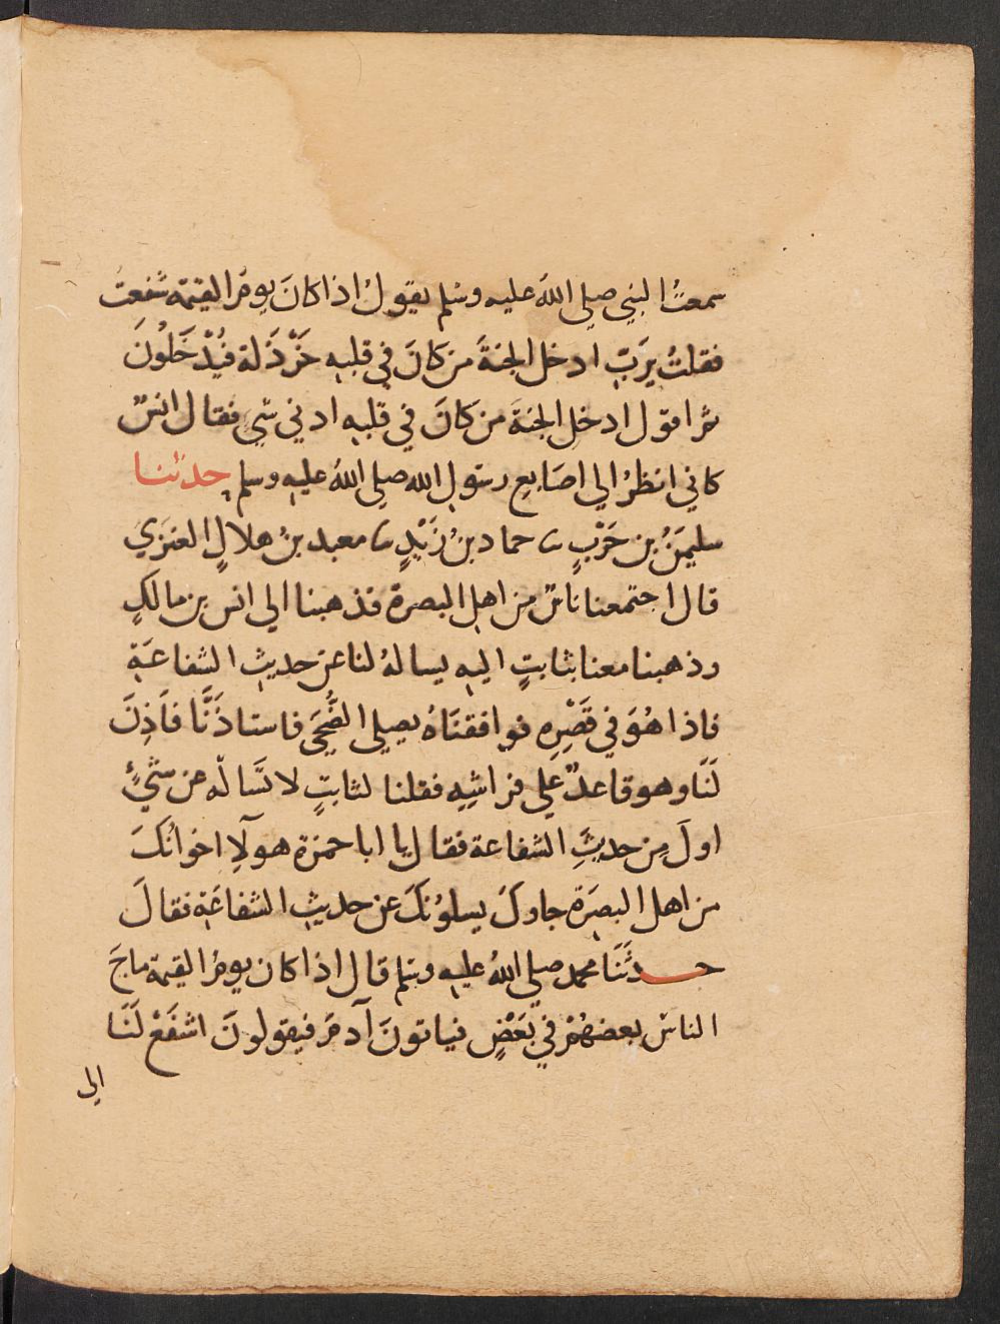 سمعتُ النبي صلي اللهَ عليه وسلم يقولُ اذا كانَ يومُ القيمة شفعتُ
فقلتُ يرَبّ ادخل الجنةَ من كَانَ في قلبه خَرْدَلة فيُدْخَلُونَ
ثم اقول ادخل الجنةَ من كَانَ في قلبه ادني شي فقال انسٌ
كاني انظرُ الي اصَابعِ رسَولِ الله صلي اللهُ عليه وسلم حدثنا
سليمَنُ بن حَرْبٍ نا حماد بنُ زَيْدٍ نا معبد بنُ هلالٍ العنزيَ
قال اجتمعنا ناسٌ من اهل البصرة فذهبنا الي انس بن مالكٍ
وذهبنا معنا بثابتٍ اليه يسالهُ لنا عن حديثِ الشفاعَةِ
فاذا هُوَ في قَصْرِه فوافقنَاهُ يصلي الضُّحَي فاستاذَنَّا فاَذِنَ
لَنَا وهو قاعدٌ علي فراشِه فقلنا لثابتٍ لا تسَالْه عن شيْءٍ
اولَ مِن حديثِ الشفاعة فقال يا ابا حمزة هولآءِ اخوانُكَ
من اهل البصَرة جاوكَ يسلوُنكَ عن حديثِ الشفاعَةِ فقالَ
حدثَنَا محمد صلي اللهُ عليه وسلم قال اذا كان يومُ القيمة ماجَ
الناسُ بعضهُمْ في بَعَضٍ فياتونَ آدمَ فيقولونَ اشفَعْ لَنَا
الي